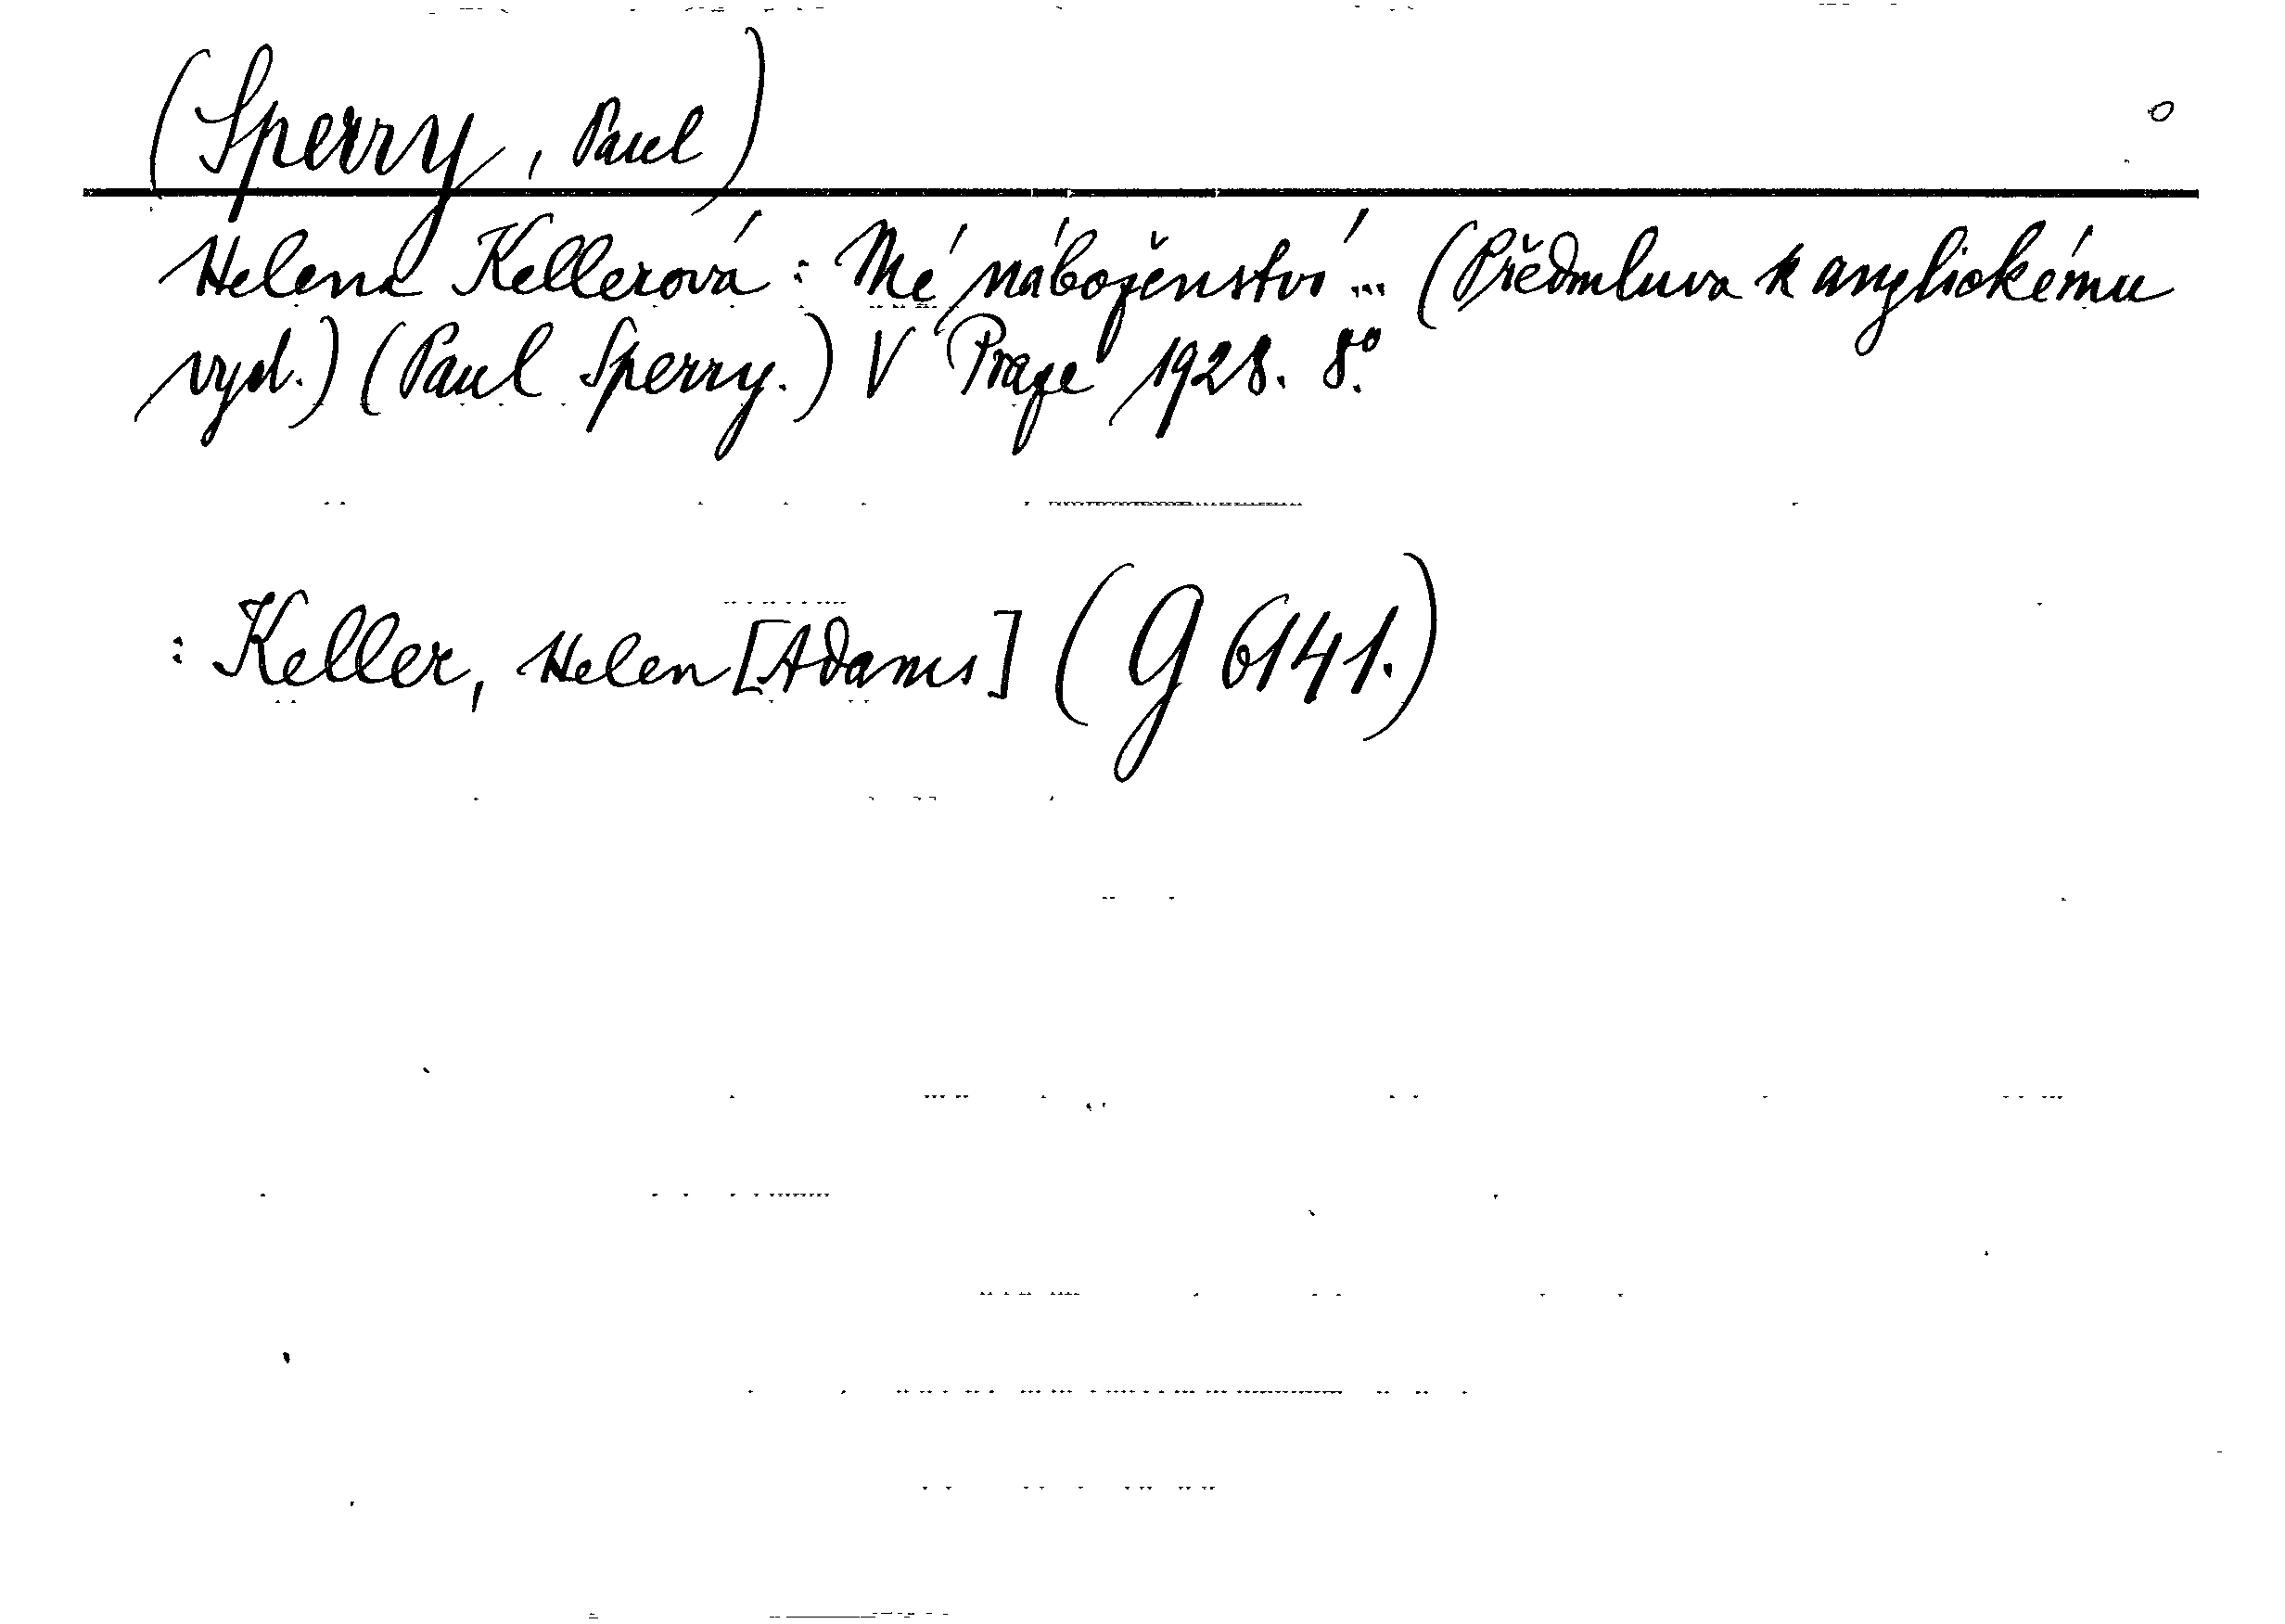 (Sperry, Paul) o
Helena Kellerová: Mé náboženství... (Předmluva k anglickému
vyd.) (Paul Sperry.) V Praze 1928. 8°.
: Keller, Helen [Adams] (G 6141.)